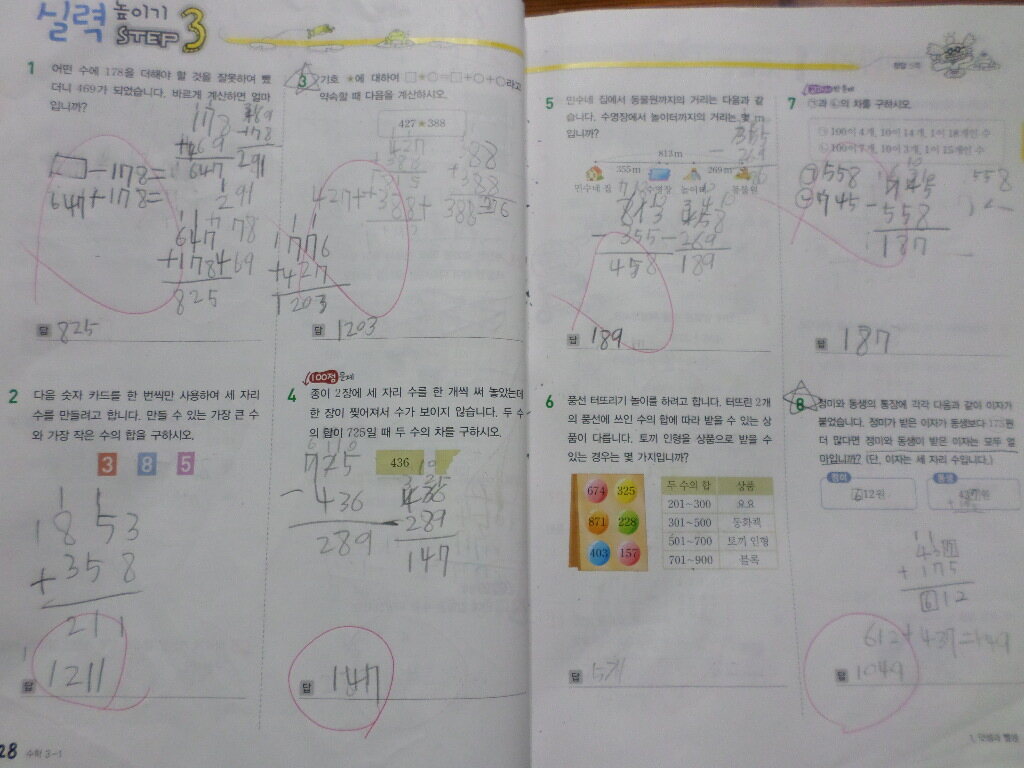 실력 높이기
STEP 3
1 어떤 수에 178을 더해야 할 것을 잘못하여 뺐
더니 469가 되었습니다. 바르게 계산하면 얼마
입니까?
469
+178
647
469
-178
291
-178=
647+178=
647
+178
825
답 825
2 다음 숫자 카드를 한 번씩만 사용하여 세 자리
수를 만들려고 합니다. 만들 수 있는 가장 큰 수
와 가장 작은 수의 합을 구하시오.
3 8 5
853
+358
211
답 1211
28 수학 3-1
3 기호 ★에 대하여 □★○=□+○+○라고
약속할 때 다음을 계산하시오.
427★388
388
+388
776
427+388+388
776
+427
1203
답 1203
100점 문제
4 종이 2장에 세 자리 수를 한 개씩 써 놓았는데
한 장이 찢어져서 수가 보이지 않습니다. 두 수
의 합이 725일 때 두 수의 차를 구하시오.
436
725
-436
289
436
-289
147
답 147
정답 5쪽
5 민수네 집에서 동물원까지의 거리는 다음과 같
습니다. 수영장에서 놀이터까지의 거리는 몇 m
입니까?
813m
355m 269m
민수네 집 수영장 놀이터 동물원
813
-355
458
458
-269
189
답 189
6 풍선 터뜨리기 놀이를 하려고 합니다. 터뜨린 2개
의 풍선에 쓰인 수의 합에 따라 받을 수 있는 상
품이 다릅니다. 토끼 인형을 상품으로 받을 수
있는 경우는 몇 가지입니까?
674 325
871 228
403 157
두 수의 합 상품
201~300 요요
301~500 동화책
501~700 토끼 인형
701~900 블록
답 5개
문제
7 ㉠과 ㉡의 차를 구하시오.
㉠ 100이 4개, 10이 14개, 1이 18개인 수
㉡ 100이 7개, 10이 3개, 1이 15개인 수
㉠ 558
㉡ 745
745
-558
187
558
답 187
8 정미와 동생의 통장에 각각 다음과 같이 이자가
붙었습니다. 정미가 받은 이자가 동생보다 175원
더 많다면 정미와 동생이 받은 이자는 모두 얼
마입니까? (단, 이자는 세 자리 수입니다.)
정미 동생
612원 437원
437
+175
612
612+437=1049
답 1049
1. 덧셈과 뺄셈